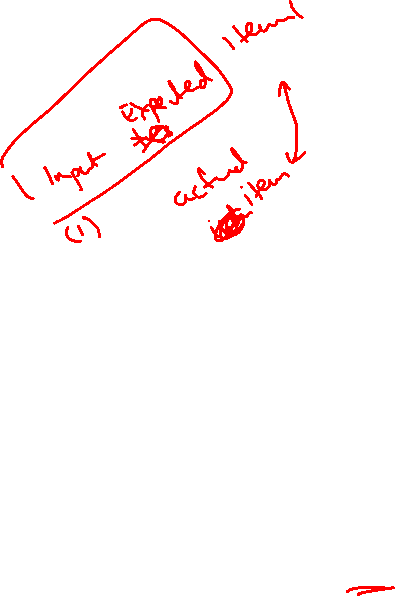 Input Expected item
(1)
actual
item